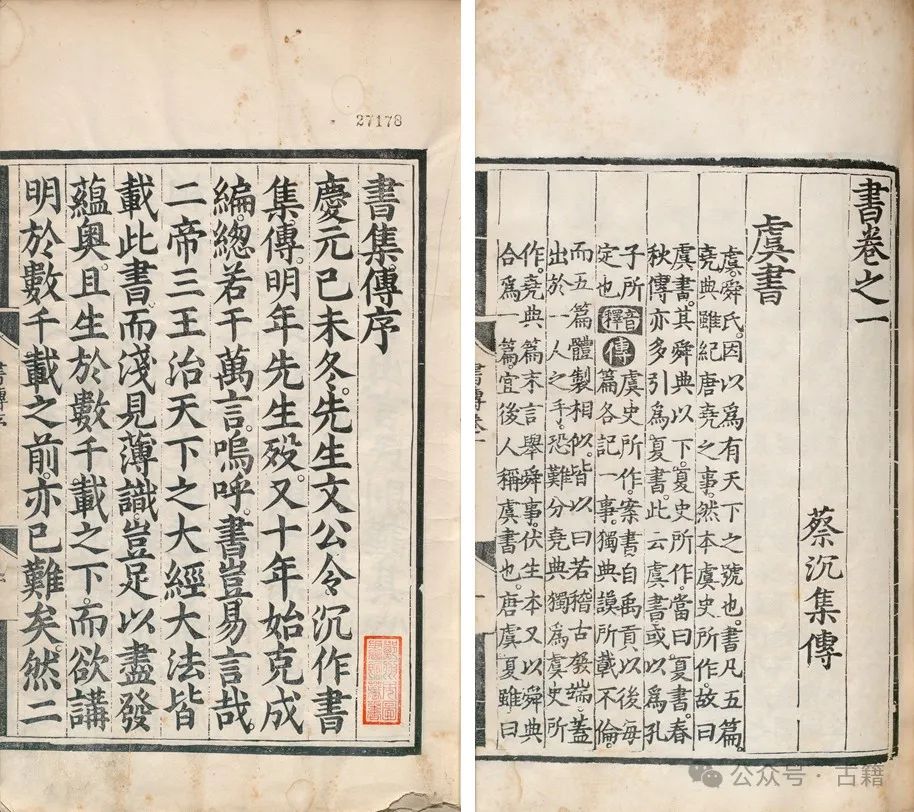 27178
書集傳序
慶元己未冬。先生文公令沉作書
集傳。明年先生殁。又十年始克成
編。總若干萬言。嗚呼。書豈易言哉
二帝三王治天下之大經大法皆
載此書。而淺見薄識豈足以盡發
蘊奧。且生於數千載之下。而欲講
明於數千載之前。亦已難矣。然二
書卷之一
蔡沉集傳
虞書
虞。舜氏。因以為有天下之號也。書凡五篇。
堯典雖紀唐堯之事。然本虞史所作。故曰
虞書。其舜典以下。夏史所作。當曰夏書。春
秋傳亦多引為夏書。此云虞書。或以為孔
子所
定也
音釋
傳
虞史所作。案書自禹貢以後每
篇各記一事。獨典謨所載不倫。
而五篇體製相似。皆以曰若稽古發端。蓋
出於一人之手。恐難分堯典獨為虞史所
作。堯典篇末言舉舜事。伏生本又以舜典
合為一篇。宜後人稱虞書也。唐虞夏雖曰
公众号·古籍